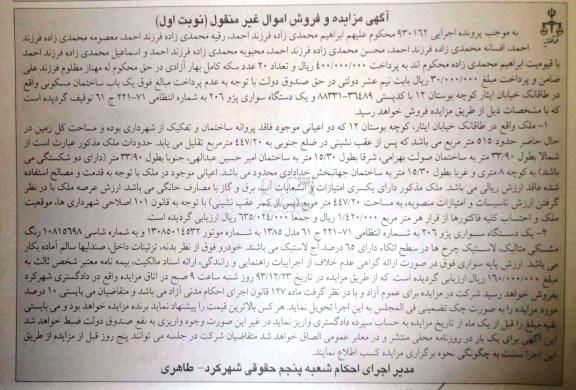 آگهی مزایده و فروش اموال غیر منقول (نوبت اول)
به موجب پرونده اجرایی ۹۳۰۱۶۲ محکوم علیهم ابراهیم محمدی زاده فرزند احمد، رقیه محمدی زاده فرزند احمد، معصومه محمدی زاده فرزند
احمد، افسانه محمدی زاده فرزند احمد، محسن محمدی زاده فرزند احمد، محبوبه محمدی زاده فرزند احمد و اسماعیل محمدی زاده فرزند احمد
با قیومیت ابراهیم محمدی زاده محکوم اند به پرداخت ۴۰۰/۰۰۰/۰۰۰ ریال و تعداد ۲۰ عدد سکه کامل بهار آزادی در حق محکوم له مهناز مظلوم فرزند علی
ضامن و پرداخت مبلغ ۳۰/۰۰۰/۰۰۰ ریال بابت نیم عشر دولتی در حق صندوق دولت با توجه به عدم پرداخت مبالغ فوق یک باب ساختمان مسکونی واقع
در طاقانک خیابان ایثار کوچه بوستان ۱۲ با کدپستی ۳۶۴۸۹-۸۸۳۳۱ و یک دستگاه سواری پژو ۲۰۶ به شماره انتظامی ۷۱-۲۲۱ ج ۶۱ توقیف گردیده است
که با مشخصات ذیل از طریق مزایده فروش خواهد رسید.
۱- ملک واقع در طاقانک خیابان ایثار، کوچه بوستان ۱۲ که دو اعیانی موجود فاقد پروانه ساختمان و تفکیک از شهرداری بوده و مساحت کل زمین در
حال حاضر حدود ۵۱۵ متر مربع می باشد که پس از عقب نشینی در ضلع جنوبی به ۴۴۷/۲۰ مترمربع تقلیل می یابد. حدودات ملک مذکور عبارت است از
شمالا بطول ۳۳/۹۰ متر به ساختمان صولت بهرامی، شرقا بطول ۱۵/۳۰ متر به ساختمان امیر حسین عبدالهی، جنوبا بطول ۳۳/۹۰ متر (دارای دو شکستگی می
باشد) به کوچه ۸ متری و غربا بطول ۱۵/۳۰ متر به ساختمان جهانبخش خدادادی محدود می باشد. اعیانی موجود در ملک با توجه به قدمت و مصالح استفاده
شده فاقد ارزش ریالی می باشد. ملک مذکور دارای یکسری امتیازات و انشعابات آب، برق و گاز با مصارف خانگی می باشد. ارزش عرصه ملک با در نظر
گرفتن ارزش تاسیسات و امتیازات منصوبه، به مساحت ۴۴۷/۲۰ متر مربع (پس از کسر عقب نشینی) با توجه به قانون ۱۰۱ اصلاحی شهرداری ها، موقعیت
ملک و احتساب کلیه فاکتورها از قرار هر متر مربع ۱/۴۲۰/۰۰۰ ریال و جمعا ۶۳۵/۰۲۴/۰۰۰ ریال ارزیابی گردیده است.
۲- یک دستگاه سواری پژو ۲۰۶ به شماره انتظامی ۷۱-۲۲۱ ج ۶۱ مدل ۱۳۸۵ به شماره موتور ۱۳۰۸۵۰۱۴۵۳۲ و به شماره شاسی ۱۰۸۱۵۶۹۸ رنگ
مشکی متالیک، لاستیک چرخ ها در سطح اتکاء دارای ۶۵ درصد آج لاستیک می باشند. خودرو فوق از نظر بدنه، تزئینات داخل، صندلیها سالم آماده بکار
می باشد. ارزش پایه سواری فوق در صورت ارائه گواهی عدم خلاف از اجراییات راهنمایی و رانندگی، ارائه اسناد مالکیت، بیمه نامه معتبر شخص ثالث به
مبلغ ۱۶۰/۰۰۰/۰۰۰ ریال ارزیابی گردیده است. که از طریق مزایده در تاریخ ۹۳/۱۲/۲۳ روز شنبه ساعت ۹ صبح در اتاق مزایده واقع در دادگستری شهرکرد
بفروش خواهد رسید شرکت در مزایده برای عموم آزاد و با در نظر گرفت ماده ۱۲۷ قانون اجرای احکام مدنی آزاد می باشد و متقاضیان می بایستی ۱۰ درصد
مورد مزایده را به صورت چک تضمینی فی المجلس به این اجرا تحویل نماید. هر کس بالاترین قیمت را پیشنهاد نماید برنده مزایده خواهد بود و می بایستی
بقیه مبلغ را قبل از یک ماه از تاریخ مزایده به حساب سپرده دادگستری واریز نماید در غیر این صورت وجوه واریزی به نفع صندوق دولت ضبط خواهد شد
این آگهی برای یک بار در روزنامه محلی منتشر و در معابر عمومی الصاق خواهد شد متقاضیان شرکت در جلسه می توانند پنج روز قبل از مزایده از طریق
این اجرا نسبت به چگونگی نحوه برگزاری مزایده کسب اطلاع نمایند.
مدیر اجرای احکام شعبه پنجم حقوقی شهرکرد- طاهری